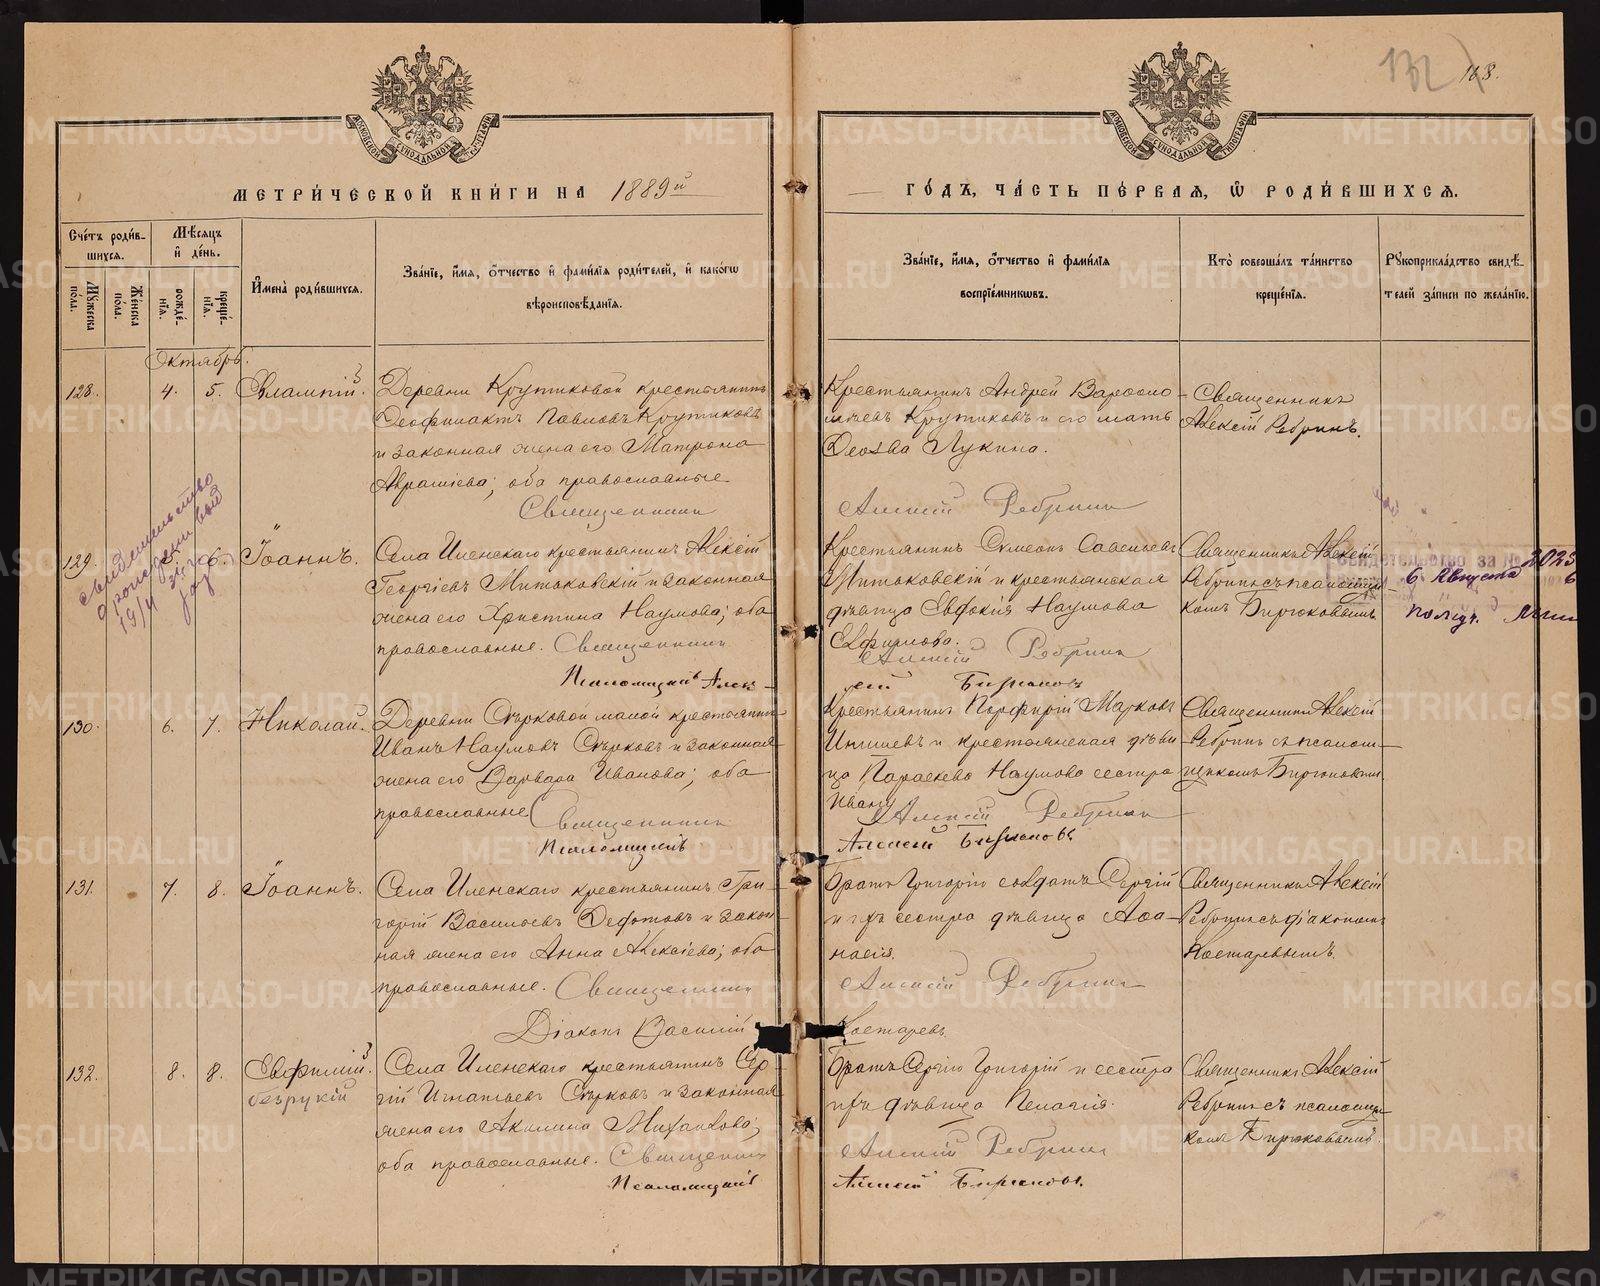 132
168.
МОСКОВСКОЙ СѴНОДАЛЬНОЙ ТИПОГРАФІИ
МОСКОВСКОЙ СѴНОДАЛЬНОЙ ТИПОГРАФІИ
МЕТРИ́ЧЕСКОЙ КНИ́ГИ НА 1889й
ГО́ДЪ, ЧА́СТЬ ПЕ́РВАЯ, Ѡ҆ РОДИ́ВШИХСЯ.
Сче́тъ роди́в-
шихся.
Мꙋ́жеска по́ла.
Же́нска по́ла.
Мѣ́сяцъ и҆ де́нь.
рожде́-
нїя.
креще́-
нїя.
И҆мена̀ роди́вшихся.
Зва́нїе, и҆́мя, ѻ҆́тчество и҆ фами́лїя роди́телей, и҆ како́гѡ
вѣроисповѣ́данїя.
Зва́нїе, и҆́мя, ѻ҆́тчество и҆ фами́лїя
воспрїе́мниковъ.
Кто̀ соверша́лъ та́инство
креще́нїя.
Рꙋкоприкла́дство свидѣ́-
телей за́писи по жела́нїю.
Октябрь.
128. 4. 5. Евлампій.
Деревни Крутиковой крестьянинъ
Ѳеофилактъ Павловъ Крутиковъ
и законная жена его Матрона
Авраміева; оба православные
Священникъ
Крестьянинъ Андрей Варѳоло-
меевъ Крутиковъ и его мать
Ѳеозва Лукина.
Алексій Ребринъ
Священникъ
Алексій Ребринъ.
129. 6. Іоаннъ.
свидѣтельство
о рожденіи
1914
Села Иленскаго крестьянинъ Алексій
Георгіевъ Митьковскій и законная
жена его Христина Наумова; оба
православные. Священникъ
Псаломщикъ Алек-
Крестьянинъ Симеонъ Савельевъ
Митьковскій и крестьянская
дѣвица Евдокія Наумова
Евфимова.
Алексій Ребринъ
сій Бирюковъ
Священникъ Алексій
Ребринъ съ псаломщи-
комъ Бирюковымъ.
свидетельство за №2023
6 Августа
130. 6. 7. Николай.
Деревни Сѣрковой малой крестьянинъ
Иванъ Наумовъ Сѣрковъ и законная
жена его Варвара Иванова; оба
православные Священникъ
Псаломщикъ
Крестьянинъ Порфирій Марковъ
и крестьянская дѣви-
ца Параскева Наумова сестра
Ивану
Алексій Ребринъ
Алексій Бирюковъ
Священникъ Алексій
Ребринъ съ псалом-
щикомъ Бирюковымъ.
131. 7. 8. Іоаннъ.
Села Иленскаго крестьянинъ Гри-
горій Васильевъ Ѳедотовъ и закон-
ная жена его Анна Алексіева; оба
православные. Священникъ
Діаконъ Василій
Братъ Григорію солдатъ Сергій
и ихъ сестра дѣвица Аѳа-
насія.
Алексій Ребринъ
Костаревъ
Священникъ Алексій
Ребринъ съ діакономъ
Костаревымъ.
132. 8. 8. Евфимій.
безрукій
Села Иленскаго крестьянинъ Сер-
гій Игнатьевъ Сѣрковъ и законная
жена его Акилина Михайлова;
оба православные. Священникъ
Псаломщикъ
Братъ Сергію Григорій и сестра
ихъ дѣвица Пелагія.
Алексій Ребринъ
Алексій Бирюковъ.
Священникъ Алексій
Ребринъ съ псаломщи-
комъ Бирюковымъ.
METRIKI.GASO-URAL.RU